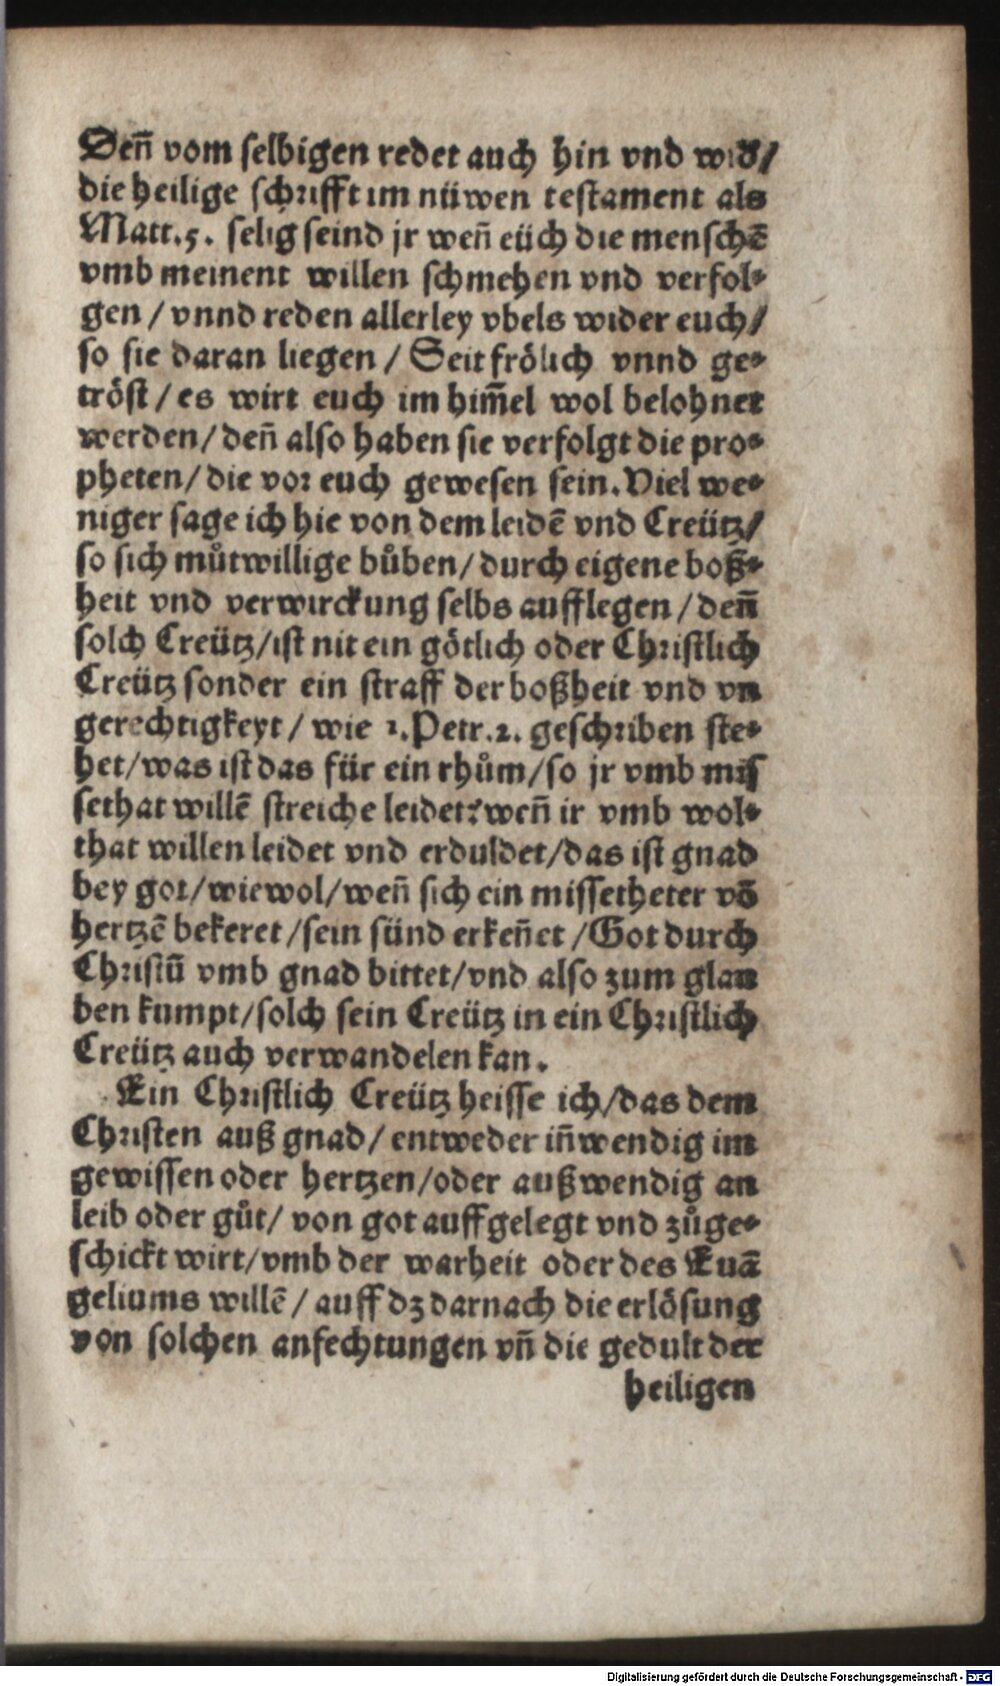 Deñ vom selbigen redet auch hin vnd wid/
die heilige schrifft im nüwen testament als
Matt.5. selig seind jr weñ eüch die menschē
vmb meinent willen schmehen vnd verfol-
gen / vnnd reden allerley vbels wider euch/
so sie daran liegen / Seit frölich vnnd ge-
tröst / es wirt euch im him̃el wol belohnet
werden / deñ also haben sie verfolgt die pro-
pheten / die vor euch gewesen sein. Viel we-
niger sage ich hie von dem leidē vnd Creütz/
so sich můtwillige bůben / durch eigene boß-
heit vnd verwirckung selbs aufflegen / deñ
solch Creütz / ist nit ein götlich oder Christlich
Creütz sonder ein straff der boßheit vnd vn
gerechtigkeyt / wie 1. Petr. 2. geschriben ste-
het / was ist das für ein rhům / so jr vmb mis
sethat willē streiche leidet? weñ ir vmb wol-
that willen leidet vnd erduldet / das ist gnad
bey got / wiewol / weñ sich ein missetheter vō
hertzē bekeret / sein sünd erkeñet / Got durch
Christū vmb gnad bittet / vnd also zum glau
ben kumpt / solch sein Creütz in ein Christlich
Creütz auch verwandelen kan.
Ein Christlich Creütz heisse ich / das dem
Christen auß gnad / entweder iñwendig im
gewissen oder hertzen / oder außwendig an
leib oder gůt / von got auffgelegt vnd zůge-
schickt wirt / vmb der warheit oder des Euā
geliums willē / auff dz darnach die erlösung
von solchen anfechtungen vñ die gedult der
heiligen
Digitalisierung gefördert durch die Deutsche Forschungsgemeinschaft - DFG